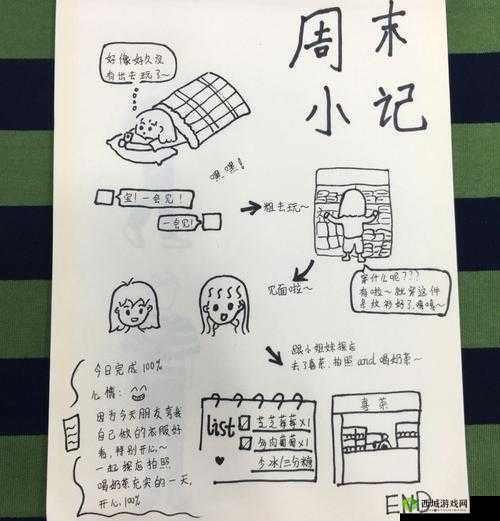 周末
小记
好像好久没
有出去玩了~
嘿,嘿!
宝!一会见!
一会见!
粗去玩~
穿什么呢???
有啦~就穿这件
见面啦~
跟小姐妹探店
去了喜茶,拍照and喝奶茶~
今日完成100%
心情:
因为今天朋友夸我
自己做的衣服好
看,特别开心~
一起探店拍照
喝奶茶充实的一天,
开心100%
list
芝芝莓莓x1
多肉葡萄x1
少冰/三分糖
喜茶
END
西城游戏网